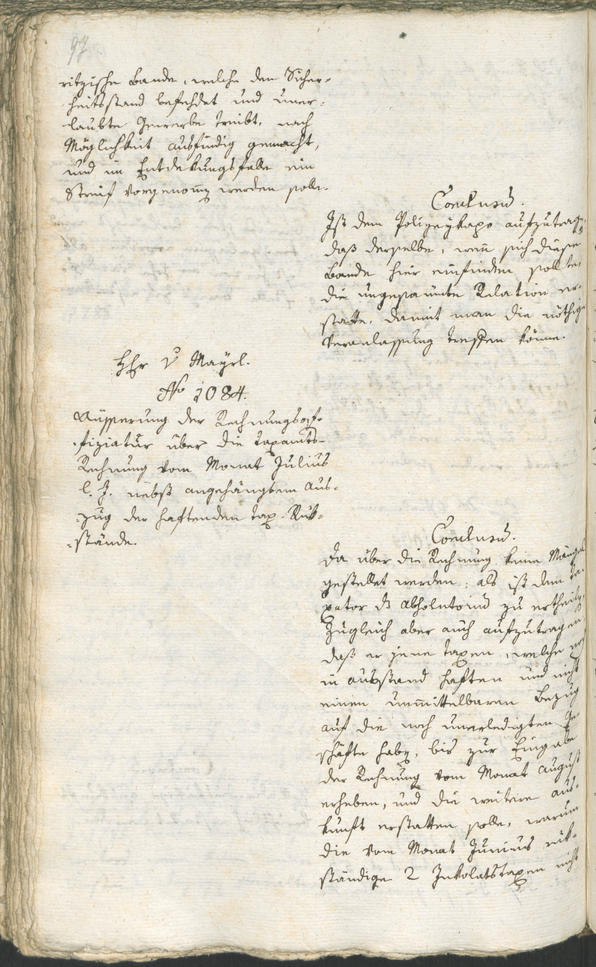 97
ritzische Bande, welche den Sicher-
heitsstand befehdet und uner-
laubte Gewerbe treibt, nach
Möglichkeit ausfindig gemacht,
und im Entdekungsfalle ein
Streif vorgenom̄en werden solle.
Conclusum.
Ist dem Polizeykapo aufzutragen,
daß derselbe, wenn sich diese
Bande hier einfinden sollte
die ungesäumte Relation er-
statte, damit man die nöthige
Veranlassung treffen könne.
Hhr v Mayrl.
No 1084.
Äusserung der Rechnungsof-
fiziatur über die Taxamts-
Rechnung vom Monat Julius
l. J. nebst angehängtem Aus-
zug der haftenden Tax-Rük-
stände.
Conclusum.
Da über die Rechnung keine Mängel
gestellet werden; als ist dem Ta-
xator das Absolutorium zu ertheilen,
zugleich aber auch aufzutragen
daß er jene Taxen, welche
in Ausstand haften und nicht
einen unmittelbaren Bezug
auf die noch unerledigten Ge-
schäfte haben, bis zur Eingabe
der Rechnung vom Monat August
erheben, und die weitere Aus-
kunft erstatten solle, warum
die vom Monat Junius rük-
ständige 2 Inkolatstaxen nicht